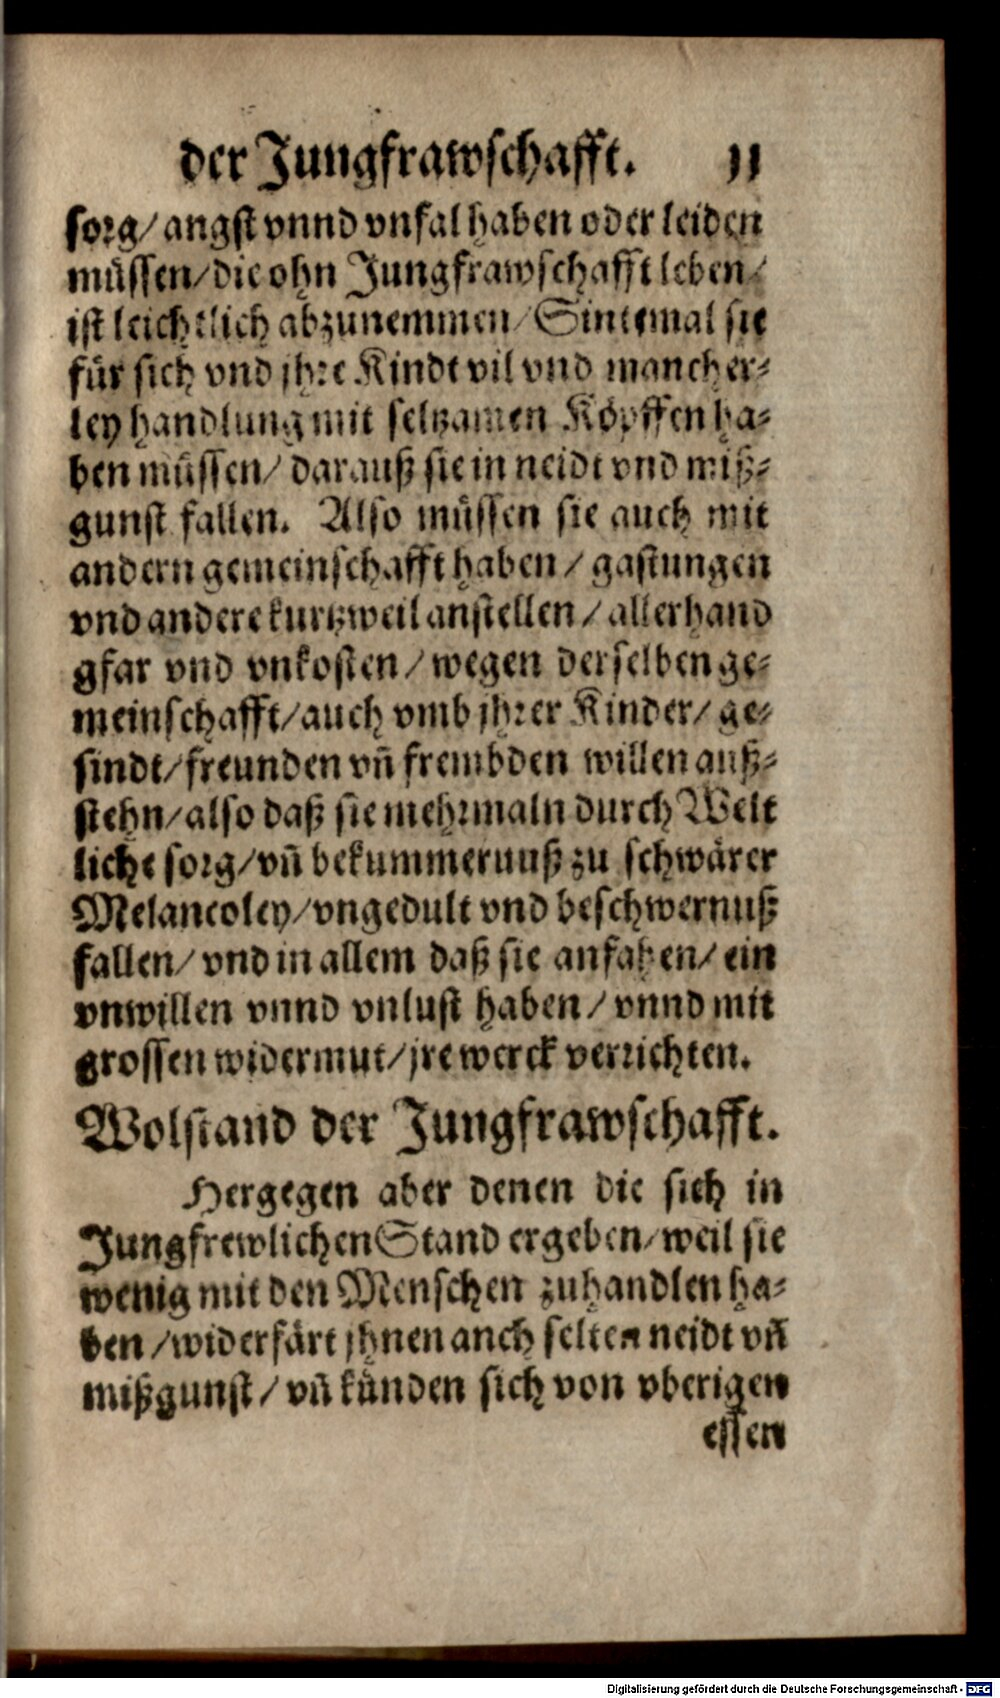 der Jungfrawschafft. 11
sorg/ angst vnnd vnfal haben oder leiden
müssen/ die ohn Jungfrawschafft leben/
ist leichtlich abzunemmen/ Sintemal sie
für sich vnd jhre Kindt vil vnd mancher-
ley handlung mit seltzamen Köpffen ha-
ben müssen/ darauß sie in neidt vnd miß-
gunst fallen. Also müssen sie auch mit
andern gemeinschafft haben/ gastungen
vnd andere kurtzweil anstellen/ allerhand
gfar vnd vnkosten/ wegen derselben ge-
meinschafft/ auch vmb jhrer Kinder/ ge-
sindt/ freunden vñ frembden willen auß-
stehn/ also daß sie mehrmaln durch Welt
liche sorg/ vñ bekummernuß zu schwärer
Melancoley/ vngedult vnd beschwernuß
fallen/ vnd in allem daß sie anfahen/ ein
vnwillen vnnd vnlust haben/ vnnd mit
grossen widermut/ jre werck verrichten.
Wolstand der Jungfrawschafft.
Hergegen aber denen die sich in
Jungfrewlichen Stand ergeben/ weil sie
wenig mit den Menschen zuhandlen ha-
ben/ widerfärt jhnen anch selten neidt vñ
mißgunst/ vñ künden sich von vberigen
essen
Digitalisierung gefördert durch die Deutsche Forschungsgemeinschaft - DFG